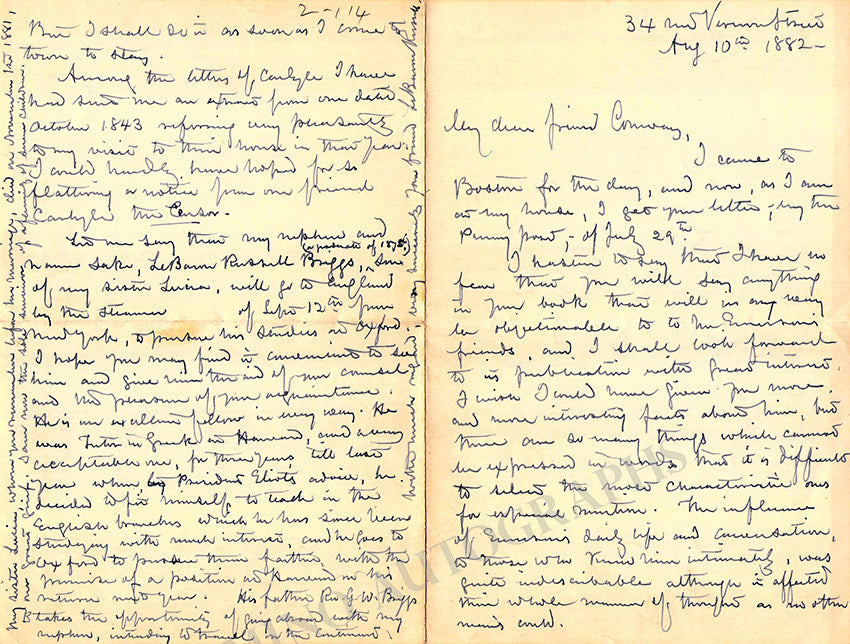 34 Mt Vernon Street
Aug 10th 1882-
My dear friend Conway,
I came to
Boston for the day, and now, as I am
at my house, I get your letter, by the
Penny post,- of July 29th
I hasten to say that I have no
fear that you will say anything
in your book that will in any way
be objectionable to to Mr. Emerson's
friends, and I shall look forward
to its publication with great interest.
I wish I could have given you more
and more interesting facts about him, but
there are so many things which cannot
be expressed in words that it is difficult
to select the most characteristic ones
for especial mention. The influence
of Emerson's daily life and conversation,
to those who knew him intimately, was
quite indescribable although it affected
their whole manner of thought as no other
man's could.
2-114
But I shall do it as soon as I come to
town to stay.
Among the letters of Carlyle I have
had sent me an extract from one dated
October 1843 referring very pleasantly
to my visit to their house in that year.
I could hardly have hoped for so
flattering a notice from our friend
Carlyle the Censor.
Let me say that my nephew and
(a graduate of 1875)
name sake, LeBaron Russell Briggs, son
of my sister Lucia, will go to England
by the steamer of Sept 12th from
New York, to pursue his studies at Oxford.
I hope you may find it convenient to see
him and give him the aid of your counsel
and the pleasure of your acquaintance.
He is an excellent fellow in every way. He
was Tutor in Greek at Harvard, and a very
acceptable one, for three years till last
year when by President Eliot's advice, he
decided to fit himself to teach in the
English branches which he has since been
studying with much interest, and he goes to
Oxford to pursue them farther, with the
promise of a position at Harvard on his
return next year. His father Rev G. W. Briggs
takes the opportunity of going abroad with my
nephew, intending to travel on the continent,
My sister Lucia, whom you remember upon her marriage, died on November 1st 1881,
to our great grief. I am now the sole survivor of a family of seven children.
With much regard very sincerely your friend LeBaron Russell
AUTOGRAPHS